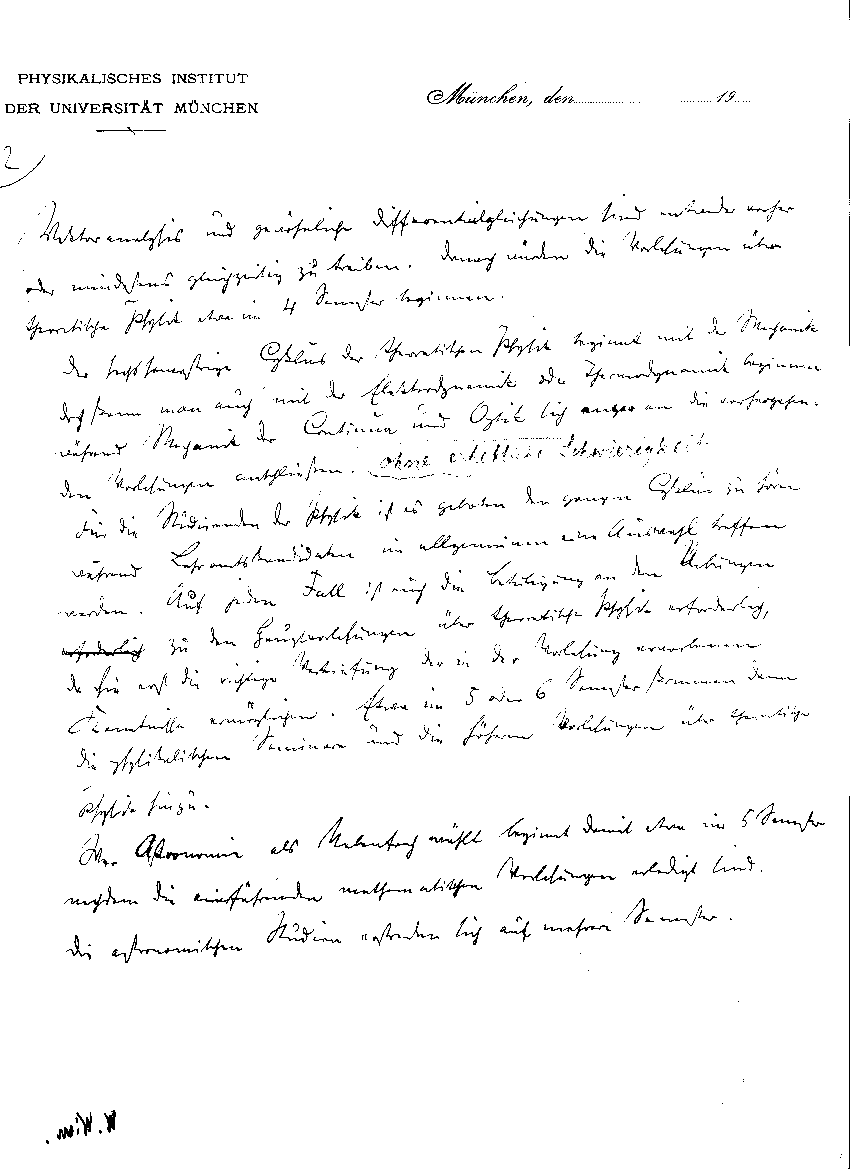 PHYSIKALISCHES INSTITUT
DER UNIVERSITÄT MÜNCHEN
München, den 19
2)
Vektoranalysis und gewöhnliche Differentialgleichungen sind entweder vorher
oder mindestens gleichzeitig zu treiben. Danach würden die Vorlesungen über
theoretische Physik etwa im 4 Semester beginnen.
Der sechssemestrige Cyklus der theoretischen Physik beginnt mit der Mechanik
doch kann man auch mit der Elektrodynamik oder Thermodynamik beginnen
während Mechanik der Continua und Optik sich enger an die vorhergehen-
den Vorlesungen anschließen. ohne erhebliche Schwierigkeit
Für die Studierenden der Physik ist es geboten den ganzen Cyklus zu hören
während Lehramtskandidaten im allgemeinen eine Auswahl treffen
werden. Auf jeden Fall ist auch die Beteiligung an den Uebungen
erforderlich zu den Hauptvorlesungen über theoretische Physik erforderlich,
da sie erst die richtige Vertiefung der in der Vorlesung erworbenen
Kenntnisse ermöglichen. Etwa im 5 oder 6 Semester kommen dann
die physikalischen Seminare und die höheren Vorlesungen über theoretische
Physik hinzu.
Wer Astronomie als Nebenfach wählt beginnt damit etwa im 5 Semester
nachdem die einführenden mathematischen Vorlesungen erledigt sind.
Die astronomischen Studien erstrecken sich auf mehrere Semester.
W. Wien